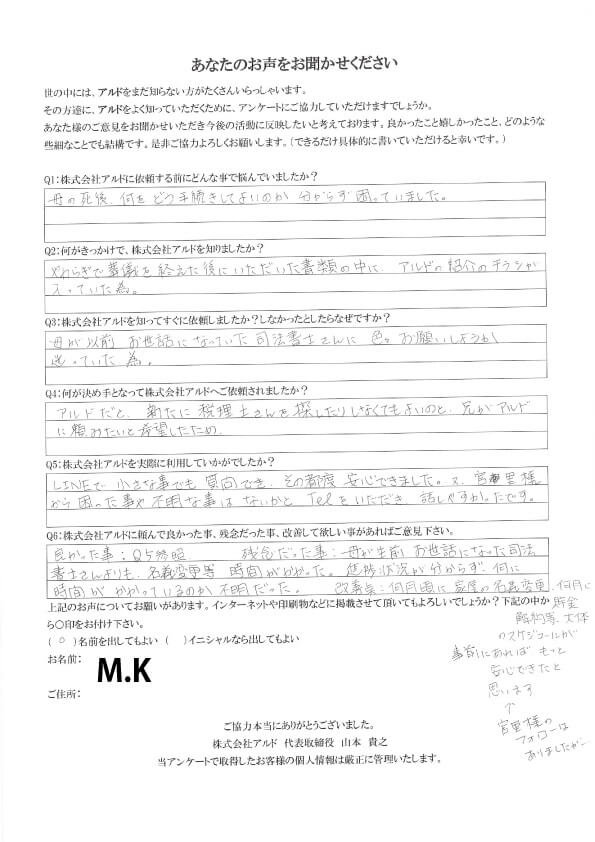 あなたのお声をお聞かせください
世の中には、アルドをまだ知らない方がたくさんいらっしゃいます。
その方達に、アルドをよく知っていただくために、アンケートにご協力していただけますでしょうか。
あなた様のご意見をお聞かせいただき今後の活動に反映したいと考えております。良かったこと嬉しかったこと、どのような
些細なことでも結構です。是非ご協力よろしくお願いします。（できるだけ具体的に書いていただけると幸いです。）
Q1：株式会社アルドに依頼する前にどんな事で悩んでいましたか？
母の死後、何をどう手続きしてよいのか 分からず 困っていました。
Q2：何がきっかけで、株式会社アルドを知りましたか？
やわらぎで葬儀を終えた後にいただいた書類の中に、アルドの紹介のチラシが
入っていた為。
Q3：株式会社アルドを知ってすぐに依頼しましたか？しなかったとしたらなぜですか？
母が以前 お世話になっていた司法書士さんに 色々お願いしようか
迷っていた為。
Q4：何が決め手となって株式会社アルドへご依頼されましたか？
アルドだと、新たに税理士さんを探したりしなくてもよいのと、兄がアルド
に頼みたいと希望したため.
Q5：株式会社アルドを実際に利用していかがでしたか？
LINEで小さな事でも質問でき、その都度 安心できました。又、宮里様
から困った事や不明な事はないかと Telをいただき、話しやすかったです。
Q6：株式会社アルドに頼んで良かった事、残念だった事、改善して欲しい事があればご意見下さい。
良かった事：Q5参照 残念だった事：母が生前お世話になった司法
書士さんよりも、名義変更等 時間がかかった。進捗状況が分からず、何に
時間がかかっているのか不明だった。 改善点：何月頃に家屋の名義変更、何月に
預金
解約等、大体
のスケジュールが
事前にあれば もっと
安心できたと
思います
↑
宮里様の
フォローは
ありましたが…
上記のお声についてお願いがあります。インターネットや印刷物などに掲載させて頂いてもよろしいでしょうか？下記の中か
ら〇印をお付け下さい。
（ ○ ）名前を出してもよい （ ）イニシャルなら出してもよい
お名前： M.K
ご住所：
ご協力本当にありがとうございました。
株式会社アルド 代表取締役 山本 貴之
当アンケートで取得したお客様の個人情報は厳正に管理いたします。